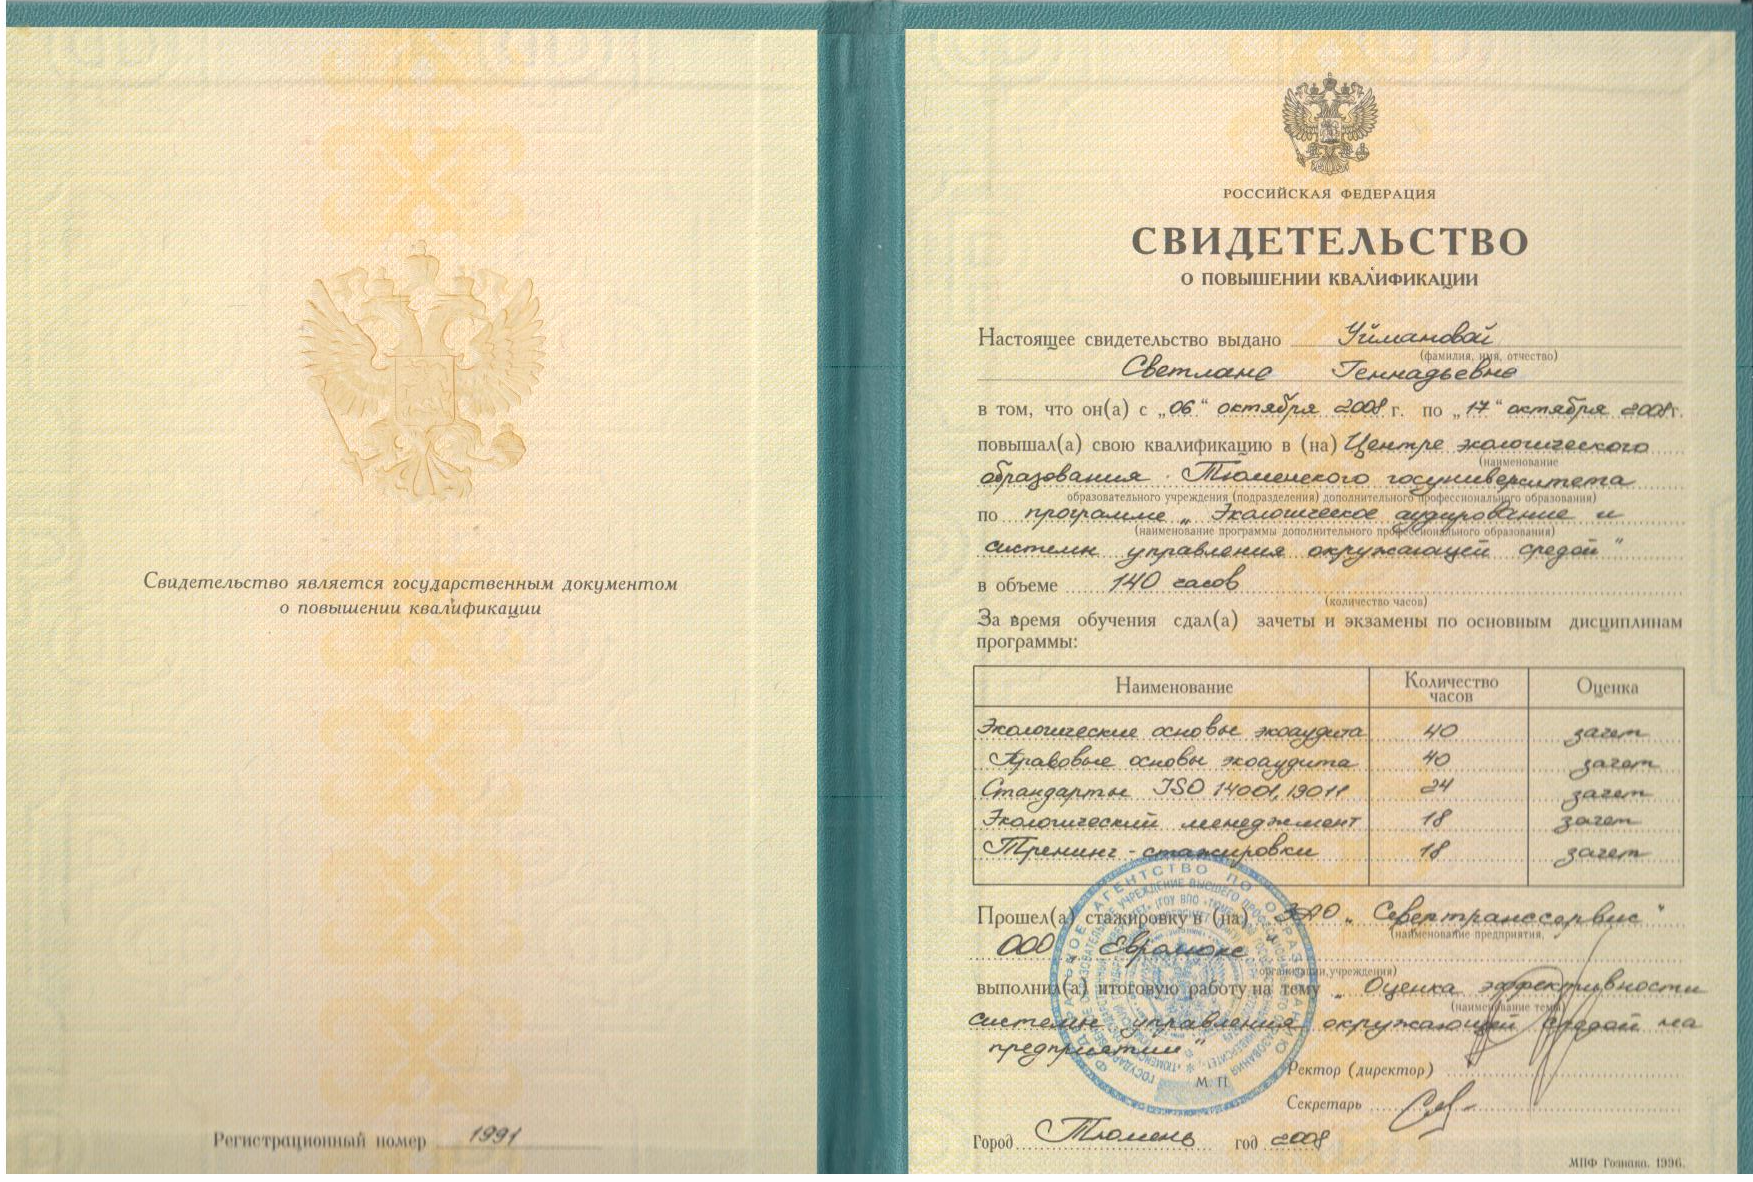 Свидетельство является государственным документом
о повышении квалификации
Регистрационный номер 1991
РОССИЙСКАЯ ФЕДЕРАЦИЯ
СВИДЕТЕЛЬСТВО
О ПОВЫШЕНИИ КВАЛИФИКАЦИИ
Настоящее свидетельство выдано Уймановой
(фамилия, имя, отчество)
Светлане Геннадьевне
в том, что он(а) с „06“ октября 2008 г. по „17“ октября 2008 г.
повышал(а) свою квалификацию в (на) Центре экологического
(наименование
образования Тюменского госуниверситета
образовательного учреждения (подразделения) дополнительного профессионального образования)
по программе „Экологическое аудирование и
(наименование программы дополнительного профессионального образования)
системы управления окружающей средой"
в объеме 140 часов
(количество часов)
За время обучения сдал(а) зачеты и экзамены по основным дисциплинам
программы:
Наименование Количество часов Оценка
Экологические основы экоаудита 40 зачет
Правовые основы экоаудита 40 зачет
Стандарты ISO 14001, 19011 24 зачет
Экологический менеджмент 18 зачет
Тренинг - стажировки 18 зачет
Прошел(а) стажировку в (на) ЗАО „Севертранссервис"
(наименование предприятия,
ООО
организации, учреждения)
выполнил(а) итоговую работу на тему „Оценка эффективности
(наименование темы)
системы управления окружающей средой на
предприятии"
М. П.
Ректор (директор)
Секретарь
Город Тюмень год 2008
МПФ Гознака. 1996.